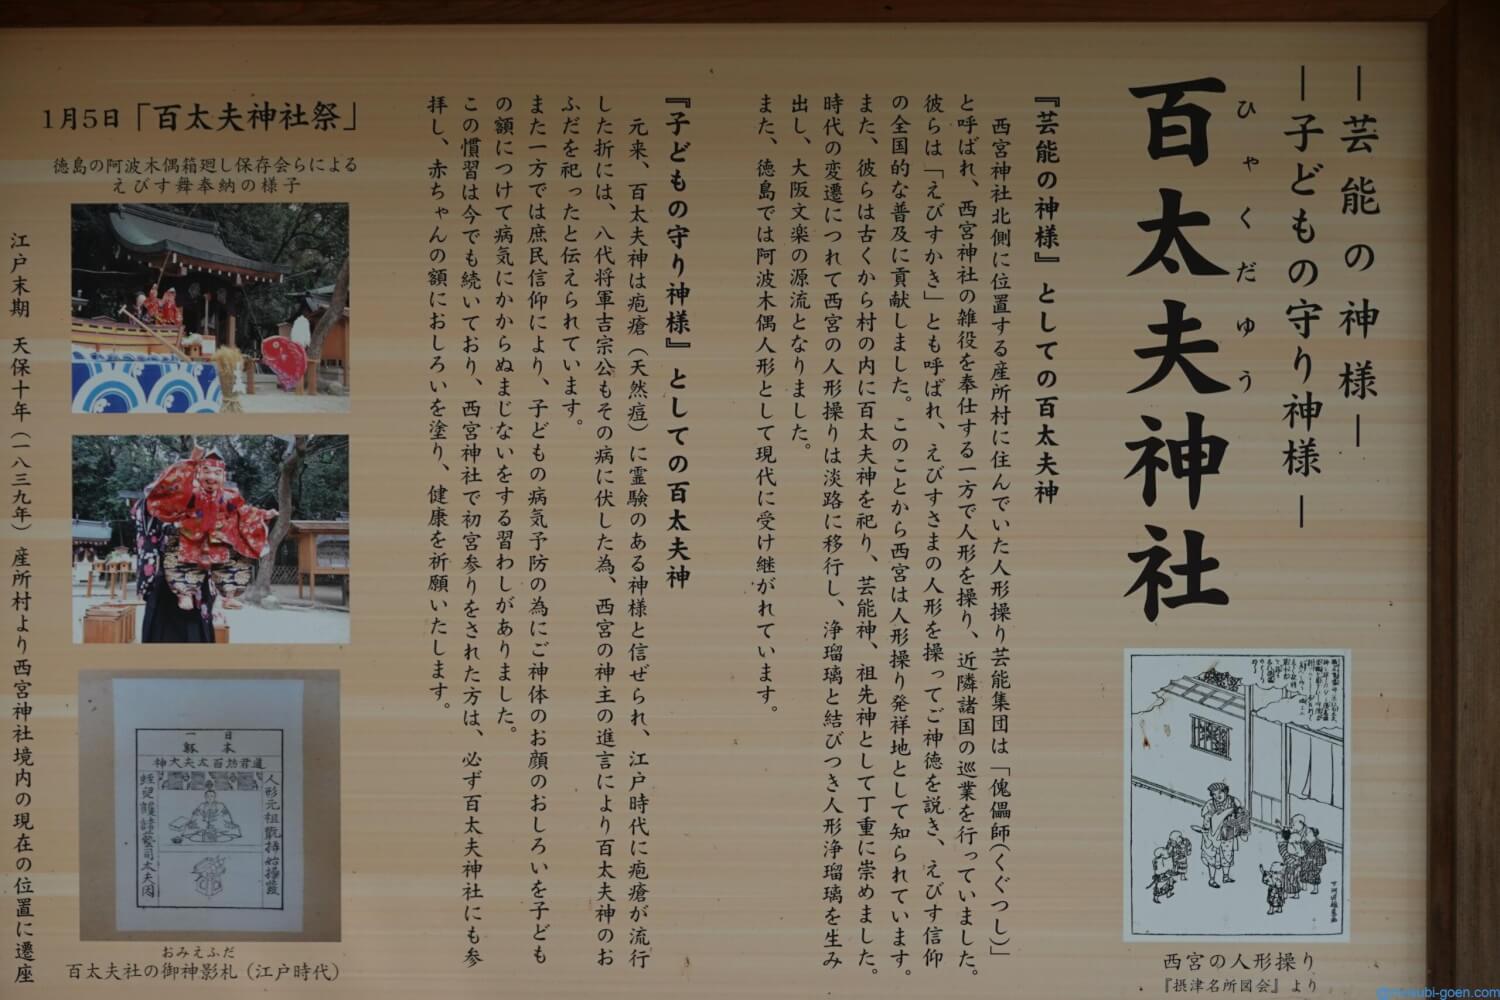 ―芸能の神様―
―子どもの守り神様―
ひゃくだゆう
百太夫神社
『芸能の神様』としての百太夫神
西宮神社北側に位置する産所村に住んでいた人形操り芸能集団は「傀儡師(くぐつし)」
と呼ばれ、西宮神社の雑役を奉仕する一方で人形を操り、近隣諸国の巡業を行っていました。
彼らは「えびすかき」とも呼ばれ、えびすさまの人形を操ってご神徳を説き、えびす信仰
の全国的な普及に貢献しました。このことから西宮は人形操り発祥地として知られています。
また、彼らは古くから村の内に百太夫神を祀り、芸能神、祖先神として丁重に崇めました。
時代の変遷につれて西宮の人形操りは淡路に移行し、浄瑠璃と結びつき人形浄瑠璃を生み
出し、大阪文楽の源流となりました。
また、徳島では阿波木偶人形として現代に受け継がれています。
『子どもの守り神様』としての百太夫神
元来、百太夫神は疱瘡（天然痘）に霊験のある神様と信ぜられ、江戸時代に疱瘡が流行
した折には、八代将軍吉宗公もその病に伏した為、西宮の神主の進言により百太夫神のお
ふだを祀ったと伝えられています。
また一方では庶民信仰により、子どもの病気予防の為にご神体のお顔のおしろいを子ども
の額につけて病気にかからぬまじないをする習わしがありました。
この慣習は今でも続いており、西宮神社で初宮参りをされた方は、必ず百太夫神社にも参
拝し、赤ちゃんの額におしろいを塗り、健康を祈願いたします。
西宮の人形操り
『摂津名所図会』より
1月5日「百太夫神社祭」
徳島の阿波木偶箱廻し保存会らによる
えびす舞奉納の様子
おみえふだ
百太夫社の御神影札（江戸時代）
江戸末期　天保十年（一八三九年）産所村より西宮神社境内の現在の位置に遷座